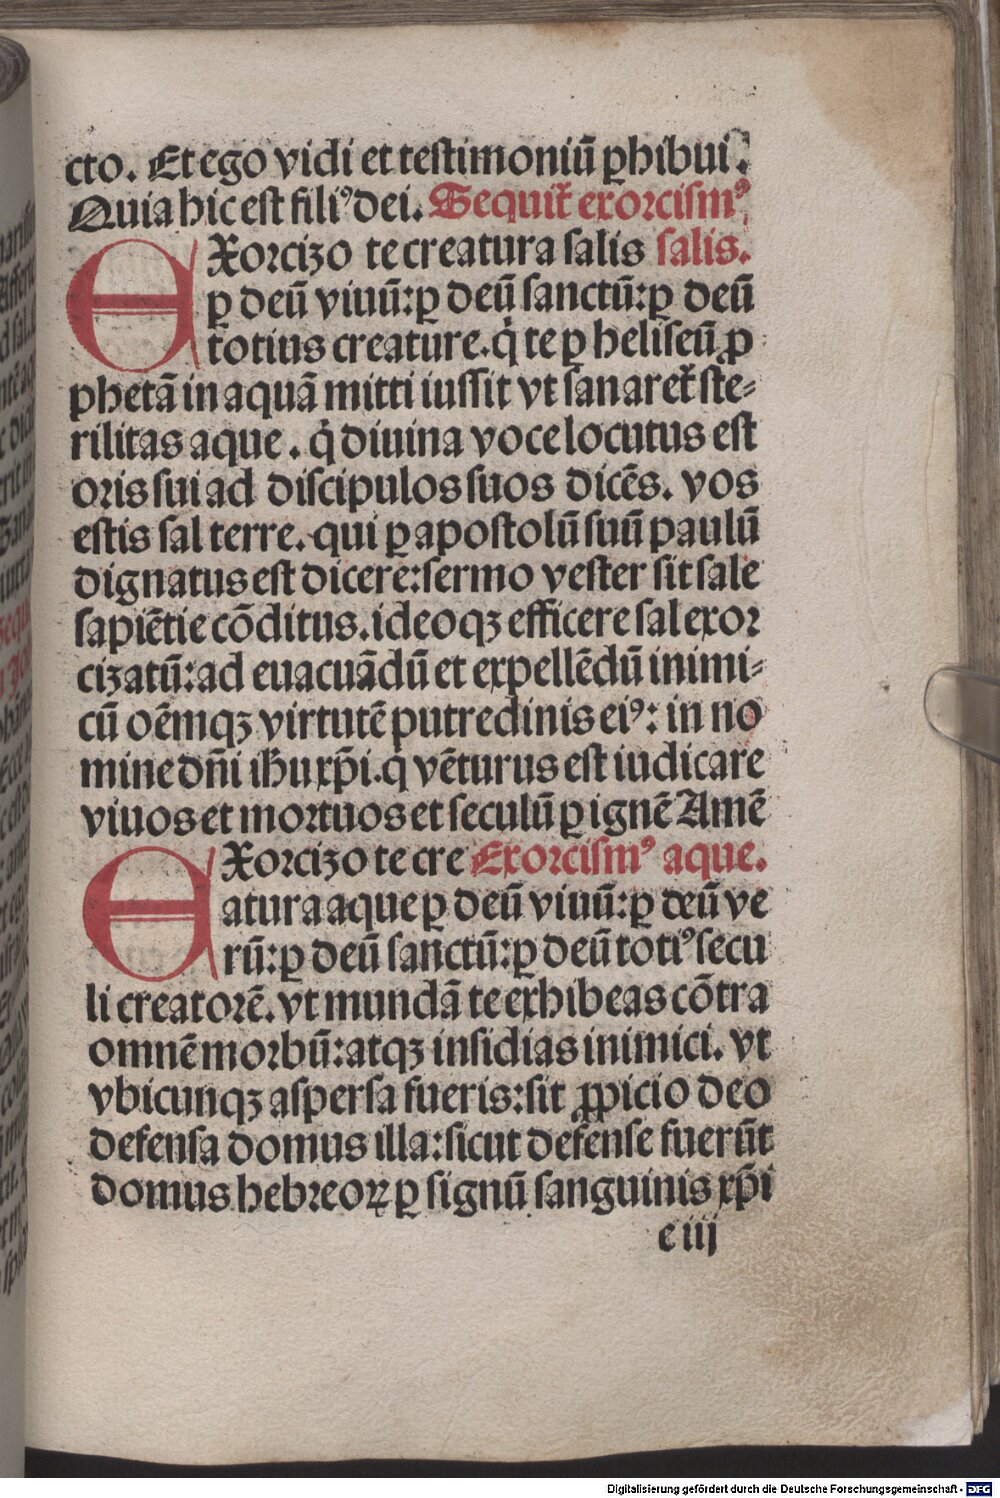 cto. Et ego vidi et testimoniū ꝑhibui.
Quia hic est filiꝰ dei. Sequit᷑ exorcismꝰ
EXorcizo te creatura salis salis.
ꝑ deū viuū: ꝑ deū sanctū: ꝑ deū
totius creature. q̇ te ꝑ heliseū ꝓ
phetā in aquā mitti iussit vt sanaret᷑ ste⸗
rilitas aque. q̇ diuina voce locutus est
oris sui ad discipulos suos dicēs. vos
estis sal terre. qui ꝑ apostolū suū paulū
dignatus est dicere: sermo vester sit sale
sapiētie cōditus. ideoqꝫ efficere sal exor
cizatū: ad euacuādū et expellēdū inimi⸗
cū oēmqꝫ virtutē putredinis eiꝰ: in no
mine dn̄i ih̄u xp̄i. q̇ vēturus est iudicare
viuos et mortuos et seculū ꝑ ignē Amē
EXorcizo te cre Exorcismꝰ aque.
atura aque ꝑ deū viuū: ꝑ deū ve
rū: ꝑ deū sanctū: ꝑ deū totiꝰ secu
li creatorē. vt mundā te exhibeas cōtra
omnē morbū: atqꝫ insidias inimici. vt
vbicunqꝫ aspersa fueris: sit ꝓpicio deo
defensa domus illa: sicut defense fuerūt
domus hebreoꝝ ꝑ signū sanguinis xp̄i
e iij
Digitalisierung gefördert durch die Deutsche Forschungsgemeinschaft - DFG